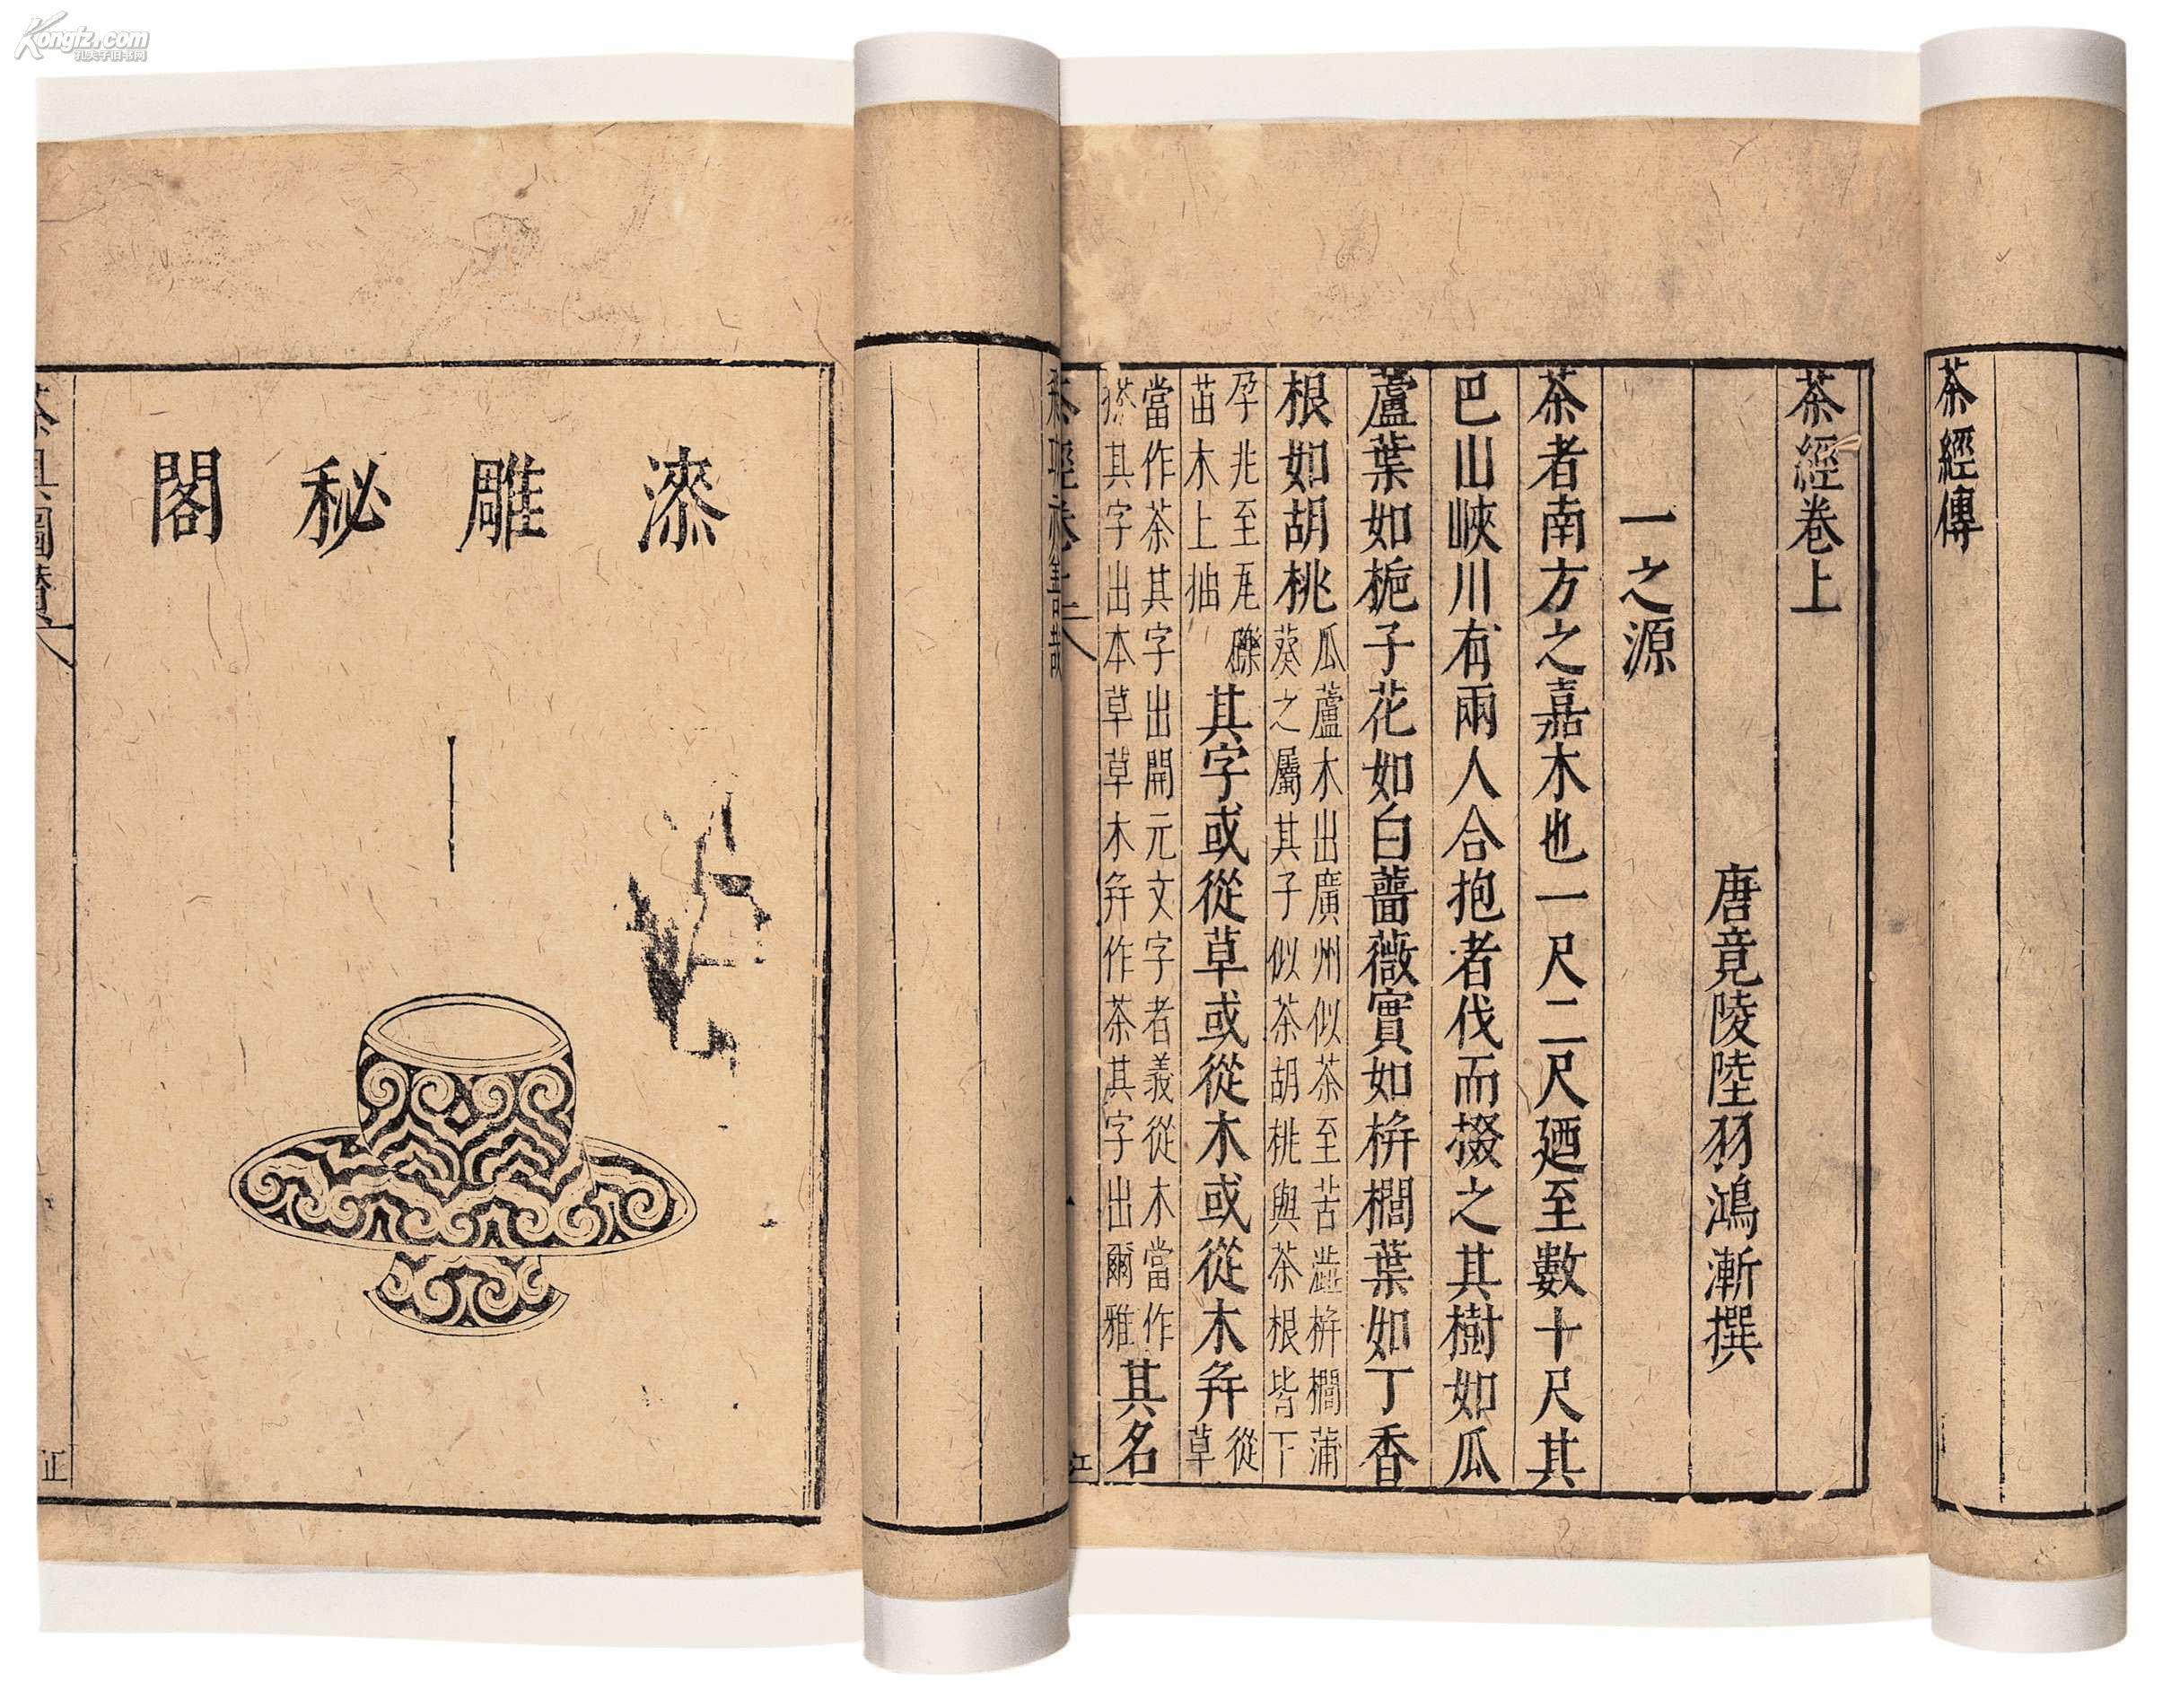 茶經傳
茶經卷上
唐竟陵陸羽鴻漸撰
一之源
茶者南方之嘉木也一尺二尺廼至數十尺其
巴山峽川有兩人合抱者伐而掇之其樹如瓜
蘆葉如梔子花如白薔薇實如栟櫚葉如丁香
根如胡桃瓜蘆木出廣州似茶至苦澁栟櫚蒲葵之屬其子似茶胡桃與茶根皆下
孕兆至瓦礫苗木上抽其字或從草或從木或從木幷從草
當作茶其字出開元文字者義從木當作搽其字出本草草木幷作茶其字出爾雅其名
漆雕秘閣
茶具圖贊
Kongfz.com
孔夫子旧书网